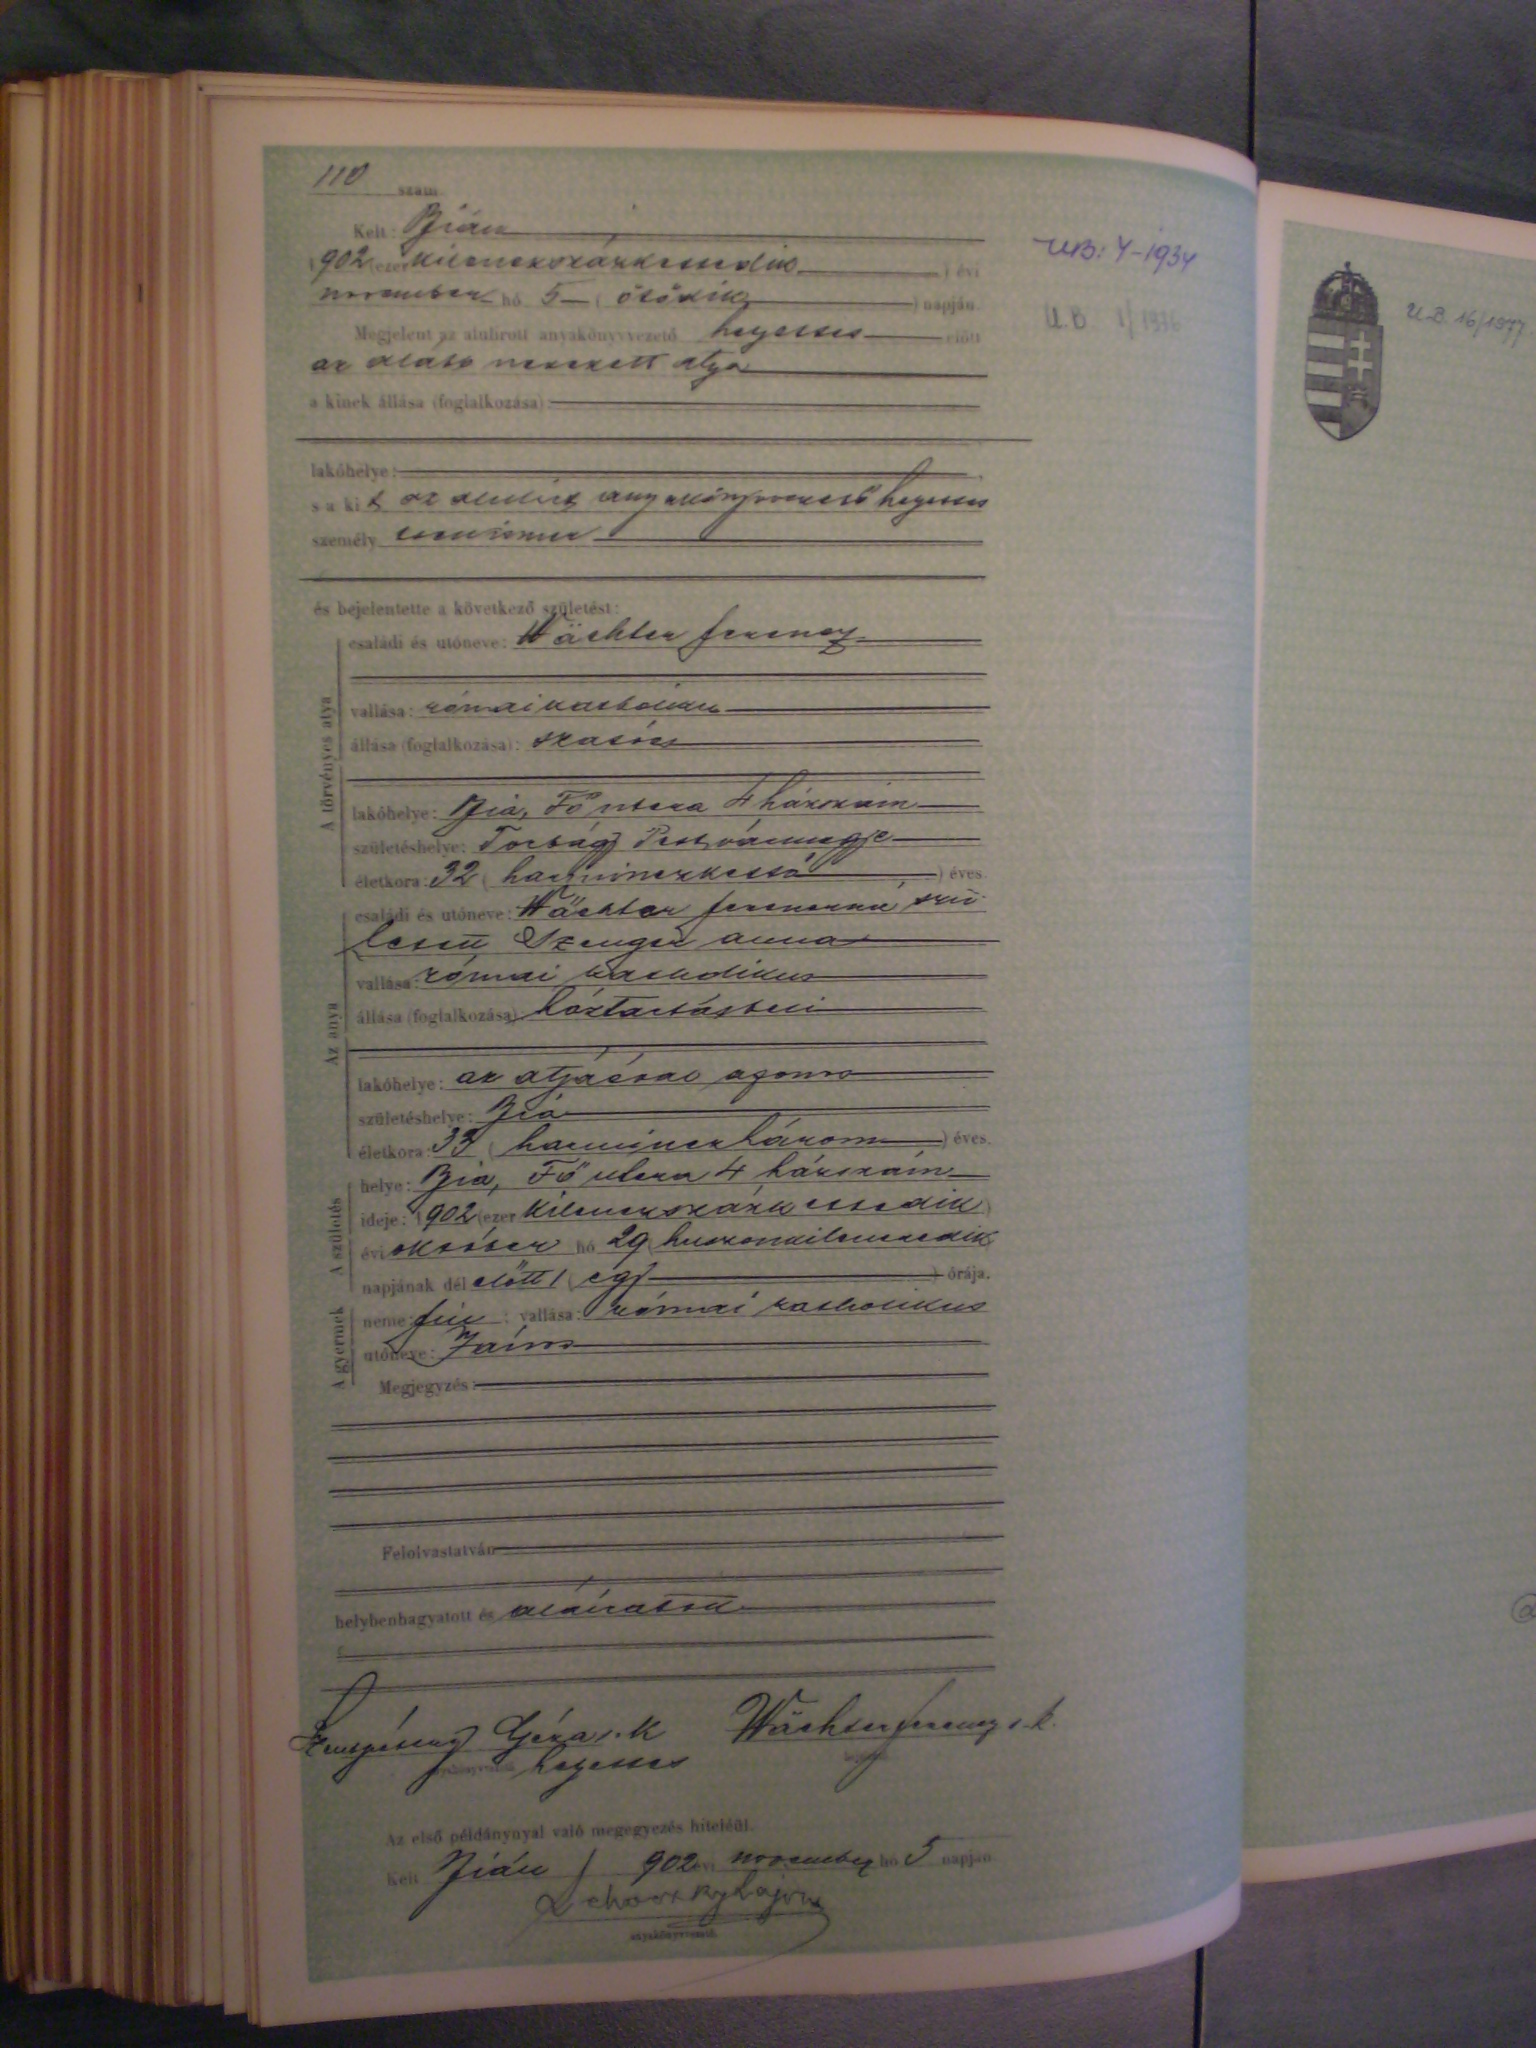 110 szám
Kelt: Bián
1902 (ezer kilenczszázkettedik) évi
november hó 5 (ötödik) napján
Megjelent az alulirott anyakönyvvezető helyettes előtt
az alább nevezett atya
a kinek állása (foglalkozása):
lakóhelye:
s a kit az alulirt anyakönyvvezető helyettes
személy
és bejelentette a következő születést:
A törvényes atya
családi és utóneve: Wächter Ferencz
vallása: római katholikus
állása (foglalkozása): szatócs
lakóhelye: Bia, Fő utcza 4 házszám
születéshelye: Torbágy Pestvármegye
életkora: 32 (harminczkettő) éves.
Az anya
családi és utóneve: Wächter Ferenczné szü-
letett Szenger Anna
vallása: római katholikus
állása (foglalkozása): háztartásbeli
lakóhelye: az atyáéval azonos
születéshelye: Bia
életkora: 33 (harminczhárom) éves.
A születés
helye: Bia, Fő utcza 4 házszám
ideje: 1902 (ezer kilenczszázkettedik)
évi október hó 29 (huszonkilenczedik)
napjának dél előtt 1 (egy) órája.
A gyermek
neme: fiu; vallása: római katholikus
utóneve: János
Megjegyzés:
Felolvastatván
helybenhagyatott és aláiratott
Géza s. k. Wächter Ferencz s. k.
anyakönyvvezető helyettes bejelentő
Az első példánynyal való megegyezés hiteléül.
Kelt Bián 1902 évi november hó 5 napján
Lajos
anyakönyvvezető.
UB: 4-1934
U.B 1/1936
U.B. 16/1977